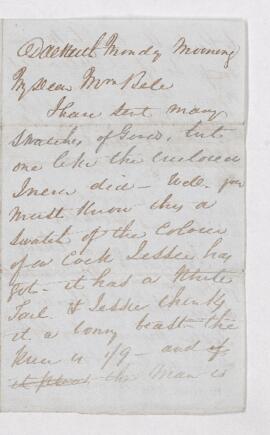 Dalkeith Mondy Morning
My Dear Mrs Bell
I have sent many
swatches of Gowns, but
one like the enclosed
I never did - Well you
must know this a
swatch of the Colour
of a Cock Jessie has
got - it has a White
Tail & Jessie thinks
it a bonny beast - the
price is 1/9 - and if
it the Man is